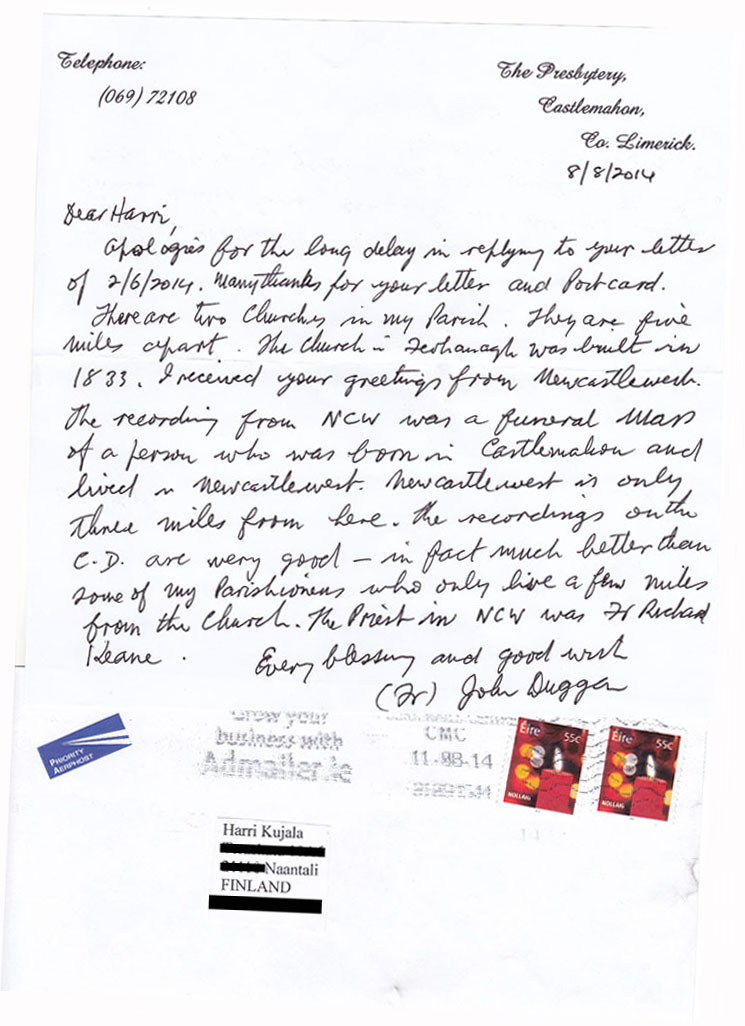 Telephone:
(069) 72108
The Presbytery,
Castlemahon,
Co. Limerick.
8/8/2014
Dear Harri,
Apologies for the long delay in replying to your letter
of 2/6/2014. Many thanks for your letter and Postcard.
There are two Churches in my Parish. They are five
miles apart. The Church in Feohanagh was built in
1833. I received your greetings from Newcastlewest.
The recording from NCW was a funeral Mass
of a person who was born in Castlemahon and
lived in Newcastlewest. Newcastlewest is only
three miles from here. The recordings on the
C.D. are very good – in fact much better than
some of my Parishioners who only live a few miles
from the Church. The Priest in NCW was Fr Richard
Keane.
Every blessing and good wish
(Fr) John Duggan
PRIORITY
AERPHOST
Grow your
business with
Admailer.ie
CMC
11-08-14
Éire 55c
NOLLAIG
Éire 55c
NOLLAIG
14
Harri Kujala
Naantali
FINLAND